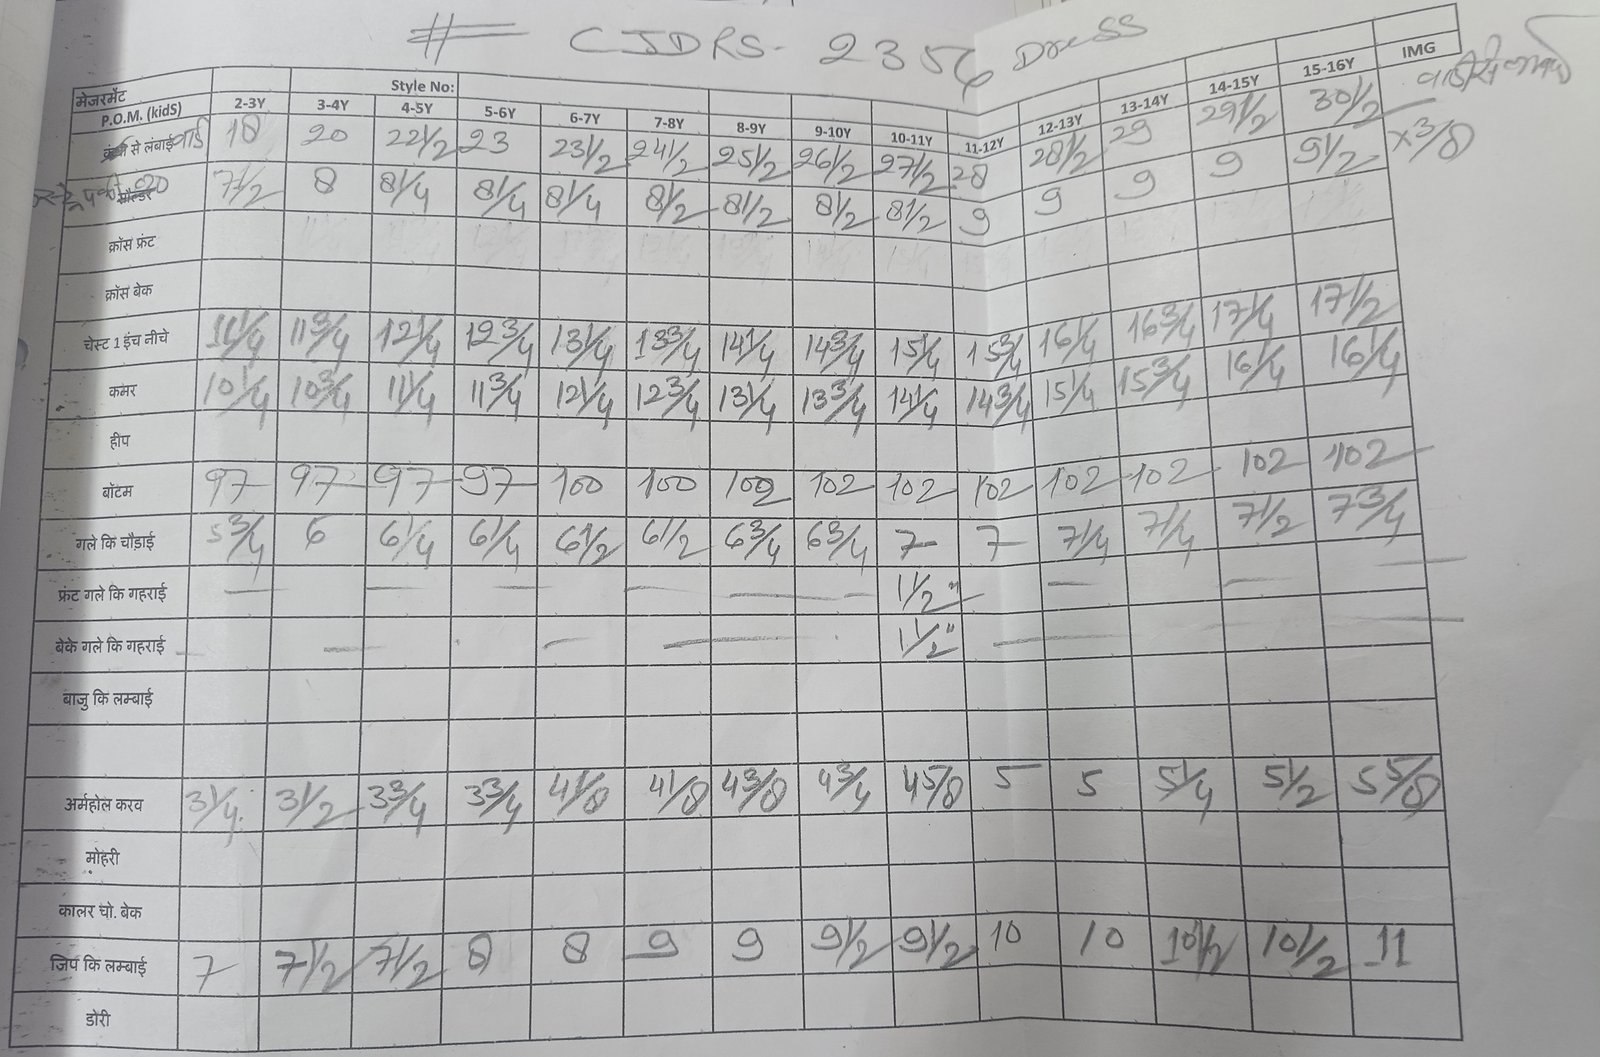 # CJDRS - 2356 Dress
मेजरमेंट Style No: IMG
P.O.M. (kidS) 2-3Y 3-4Y 4-5Y 5-6Y 6-7Y 7-8Y 8-9Y 9-10Y 10-11Y 11-12Y 12-13Y 13-14Y 14-15Y 15-16Y
से लंबाई 18 20 22 1/2 23 23 1/2 24 1/2 25 1/2 26 1/2 27 1/2 28 28 1/2 29 29 1/2 30 1/2
7 1/2 8 8 1/4 8 1/4 8 1/4 8 1/2 8 1/2 8 1/2 8 1/2 9 9 9 9 9 1/2 x 3/8
क्रॉस फ्रंट
क्रॉस बेक
चेस्ट 1 इंच नीचे 11 1/4 11 3/4 12 1/4 12 3/4 13 1/4 13 3/4 14 1/4 14 3/4 15 1/4 15 3/4 16 1/4 16 3/4 17 1/4 17 1/2
कमर 10 1/4 10 3/4 11 1/4 11 3/4 12 1/4 12 3/4 13 1/4 13 3/4 14 1/4 14 3/4 15 1/4 15 3/4 16 1/4 16 1/4
हीप
बॉटम 97 97 97 97 100 100 102 102 102 102 102 102 102
गले कि चौड़ाई 5 3/4 6 6 1/4 6 1/4 6 1/2 6 1/2 6 3/4 6 3/4 7 7 7 1/4 7 1/4 7 1/2 7 3/4
फ्रंट गले कि गहराई 1 1/2"
बेके गले कि गहराई 1 1/2"
बाजु कि लम्बाई
अर्महोल करव 3 1/4 3 1/2 3 3/4 3 3/4 4 1/8 4 1/8 4 3/8 4 3/4 4 5/8 5 5 5 1/4 5 1/2 5 5/8
मोहरी
कालर चो. बेक
जिप कि लम्बाई 7 7 1/2 7 1/2 8 8 9 9 9 1/2 9 1/2 10 10 10 1/2 10 1/2 11
डोरी